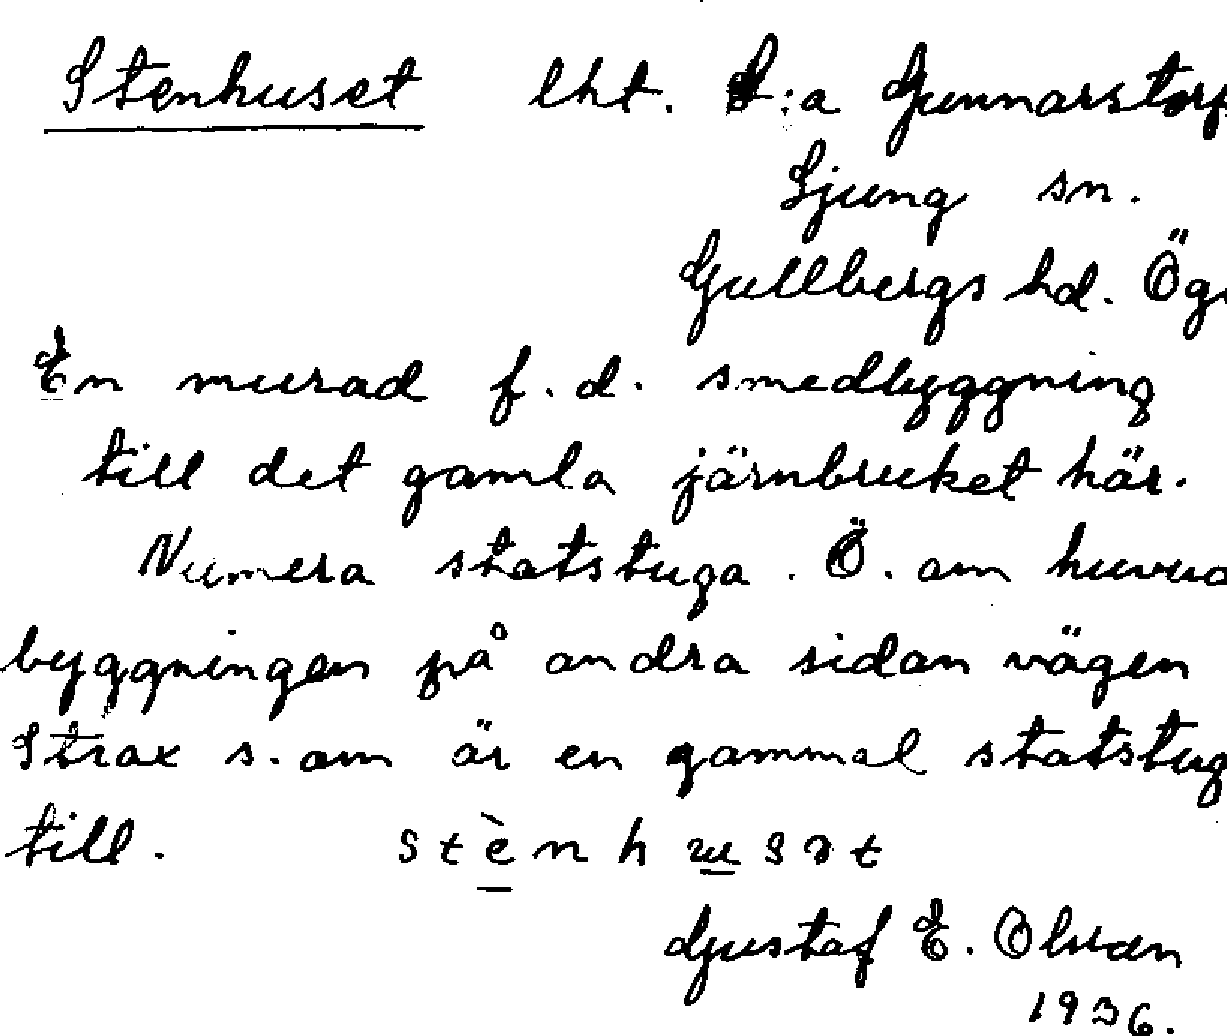 Stenhuset lht. S:a Gunnarstorp
Ljung sn.
Gullbergs hd. Ög
En murad f.d. smedbyggning
till det gamla järnbruket här.
Numera statstuga. Ö. om huvud
byggningen på andra sidan vägen
Strax s. om är en gammal statstug
till. stènhusət
Gustaf E. Olsson
1936.